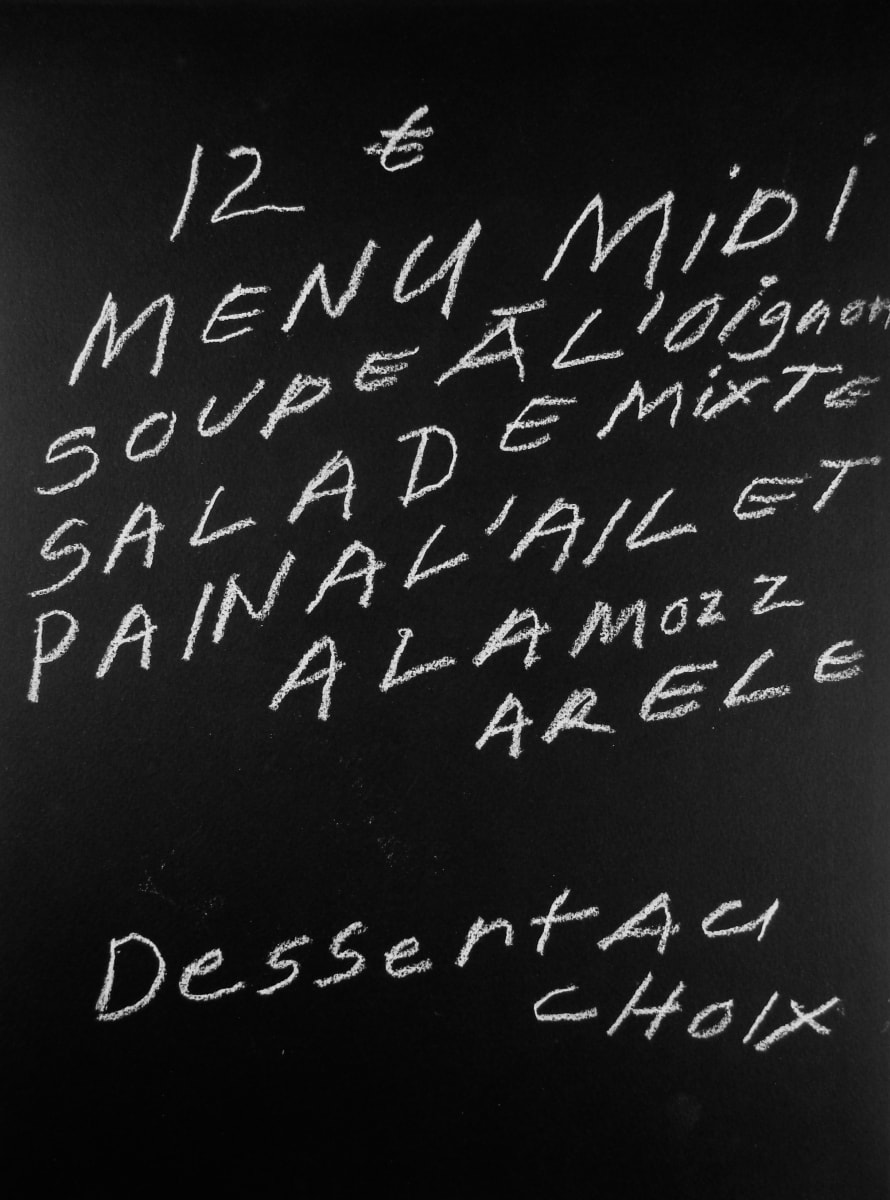 12 €
MENU MiDi
SOUPE À L'oignon
SALADE MiXTE
PAIN A L'AIL ET
A LA MOZZ
ARELE
Dessert AU
CHOIX